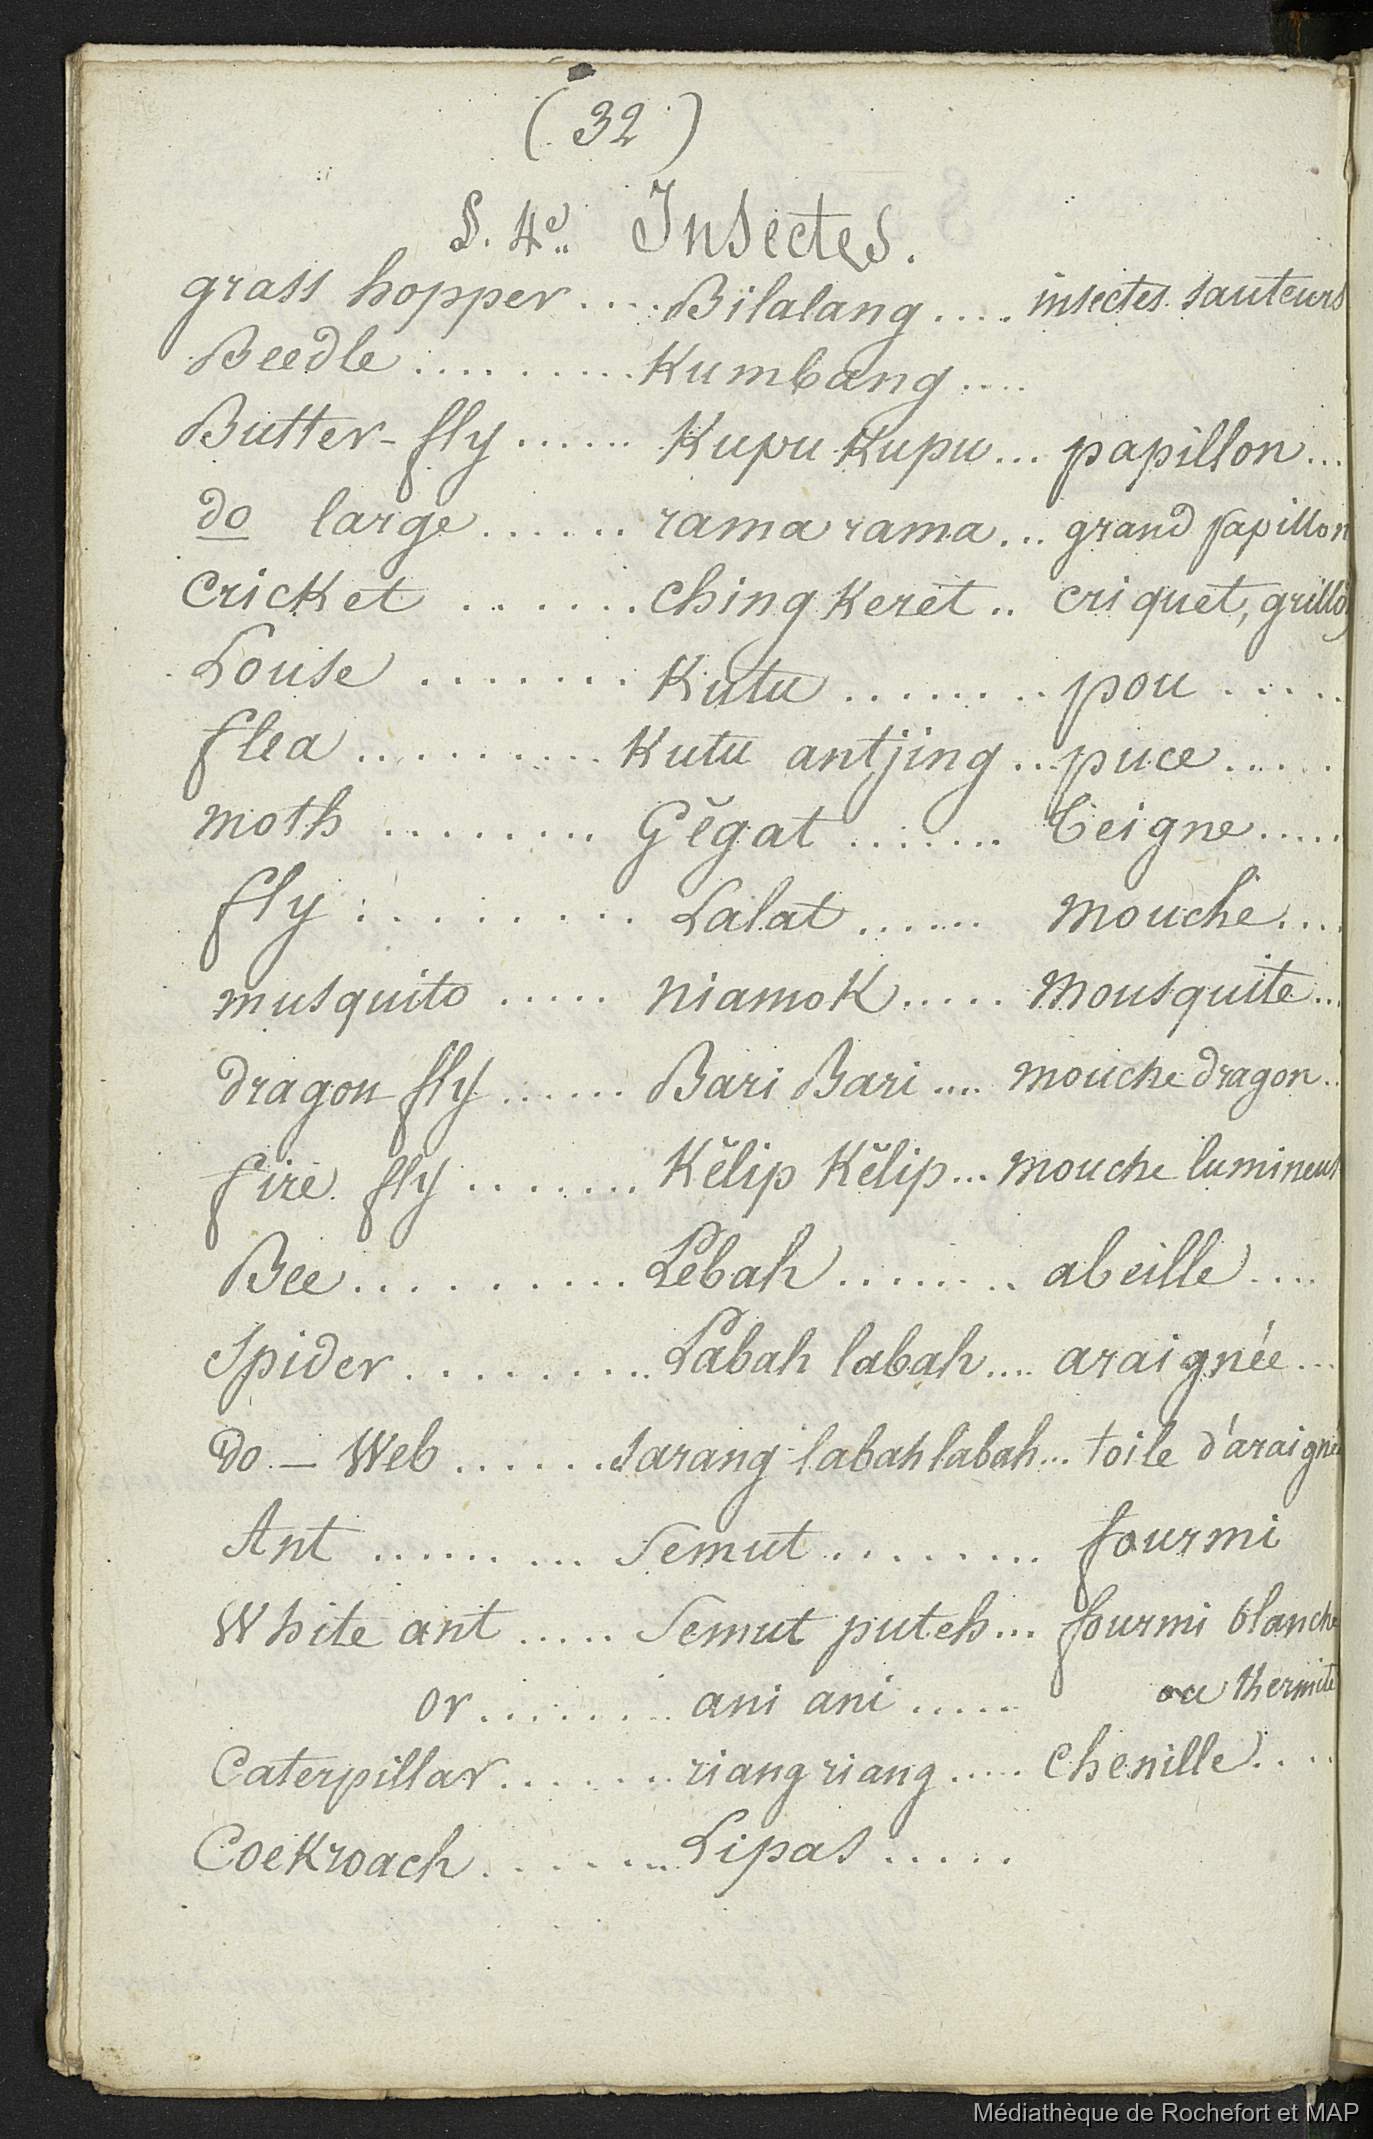 ( 32 )
§. 4e.. Insectes.
grass hopper .... Bilalang .... insectes sauteurs
Beedle ......... Kumbang ....
Butter-fly ...... Kupu Kupu ... papillon ...
do large ...... rama rama ... grand papillon
Cricket ....... ching Keret .. criquet, grillo
Louse ....... Kutu ........ pou .....
flea ......... Kutu antjing .. puce .....
moth ........ Gĕgat ....... teigne .....
fly ......... Lalat ...... mouche ....
musquito ..... niamoK ..... mousquite ...
dragon fly ...... Bari Bari .... mouche dragon ..
fire fly ........ Kĕlip Kĕlip ... mouche lumineus
Bee .......... Lebah ........ abeille ....
Spider .......... Labah labah .... araignée ...
do - Web ...... sarang labah labah ... toile d'araigné
Ant ......... Semut ........ fourmi
White ant ..... Semut puteh ... fourmi blanche
or ........ ani ani ..... ou thermite
Caterpillar ....... riang riang ..... Chenille ....
CoeKroach ....... Lipas .....
Médiathèque de Rochefort et MAP